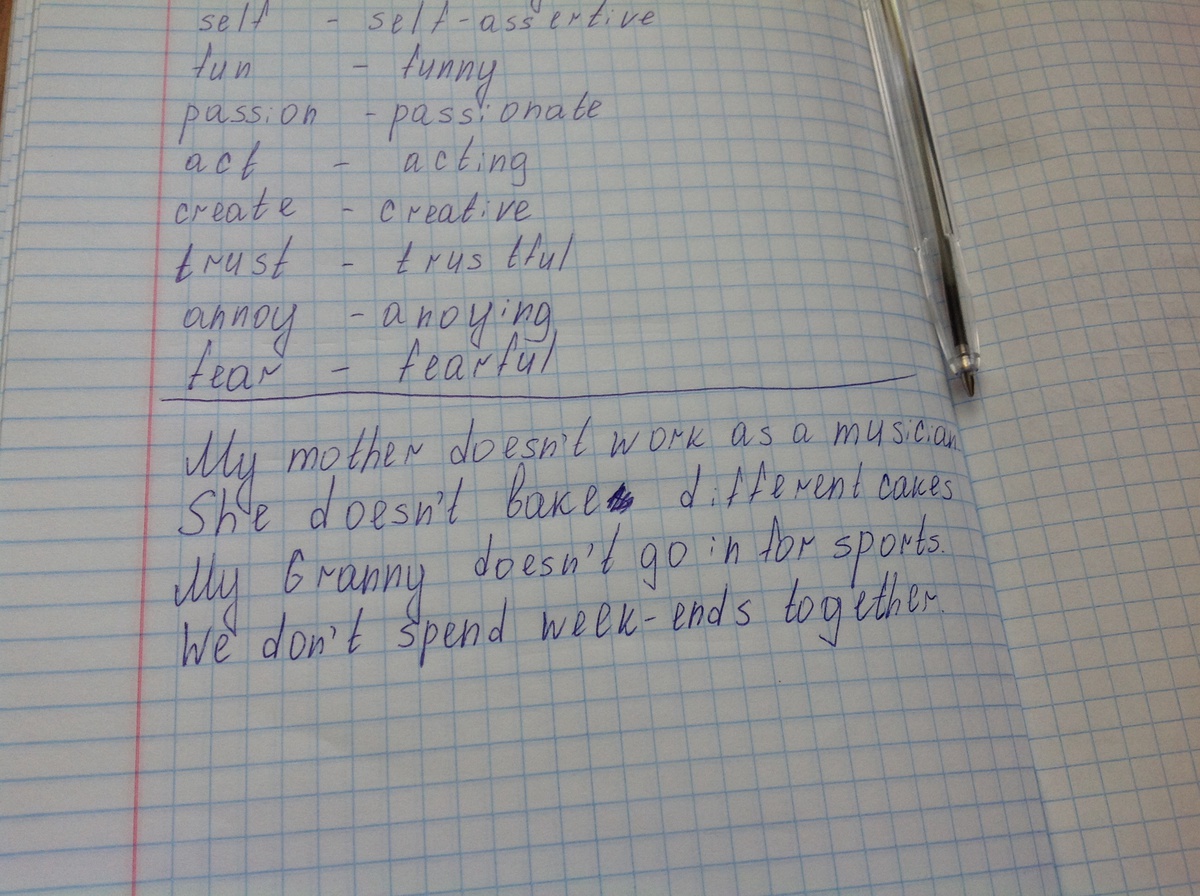 self - self-assertive
fun - funny
passion - passionate
act - acting
create - creative
trust - trustful
annoy - anoying
fear - fearful
My mother doesn't work as a musician.
She doesn't bake different cakes
My Granny doesn't go in for sports.
We don't spend week-ends together.